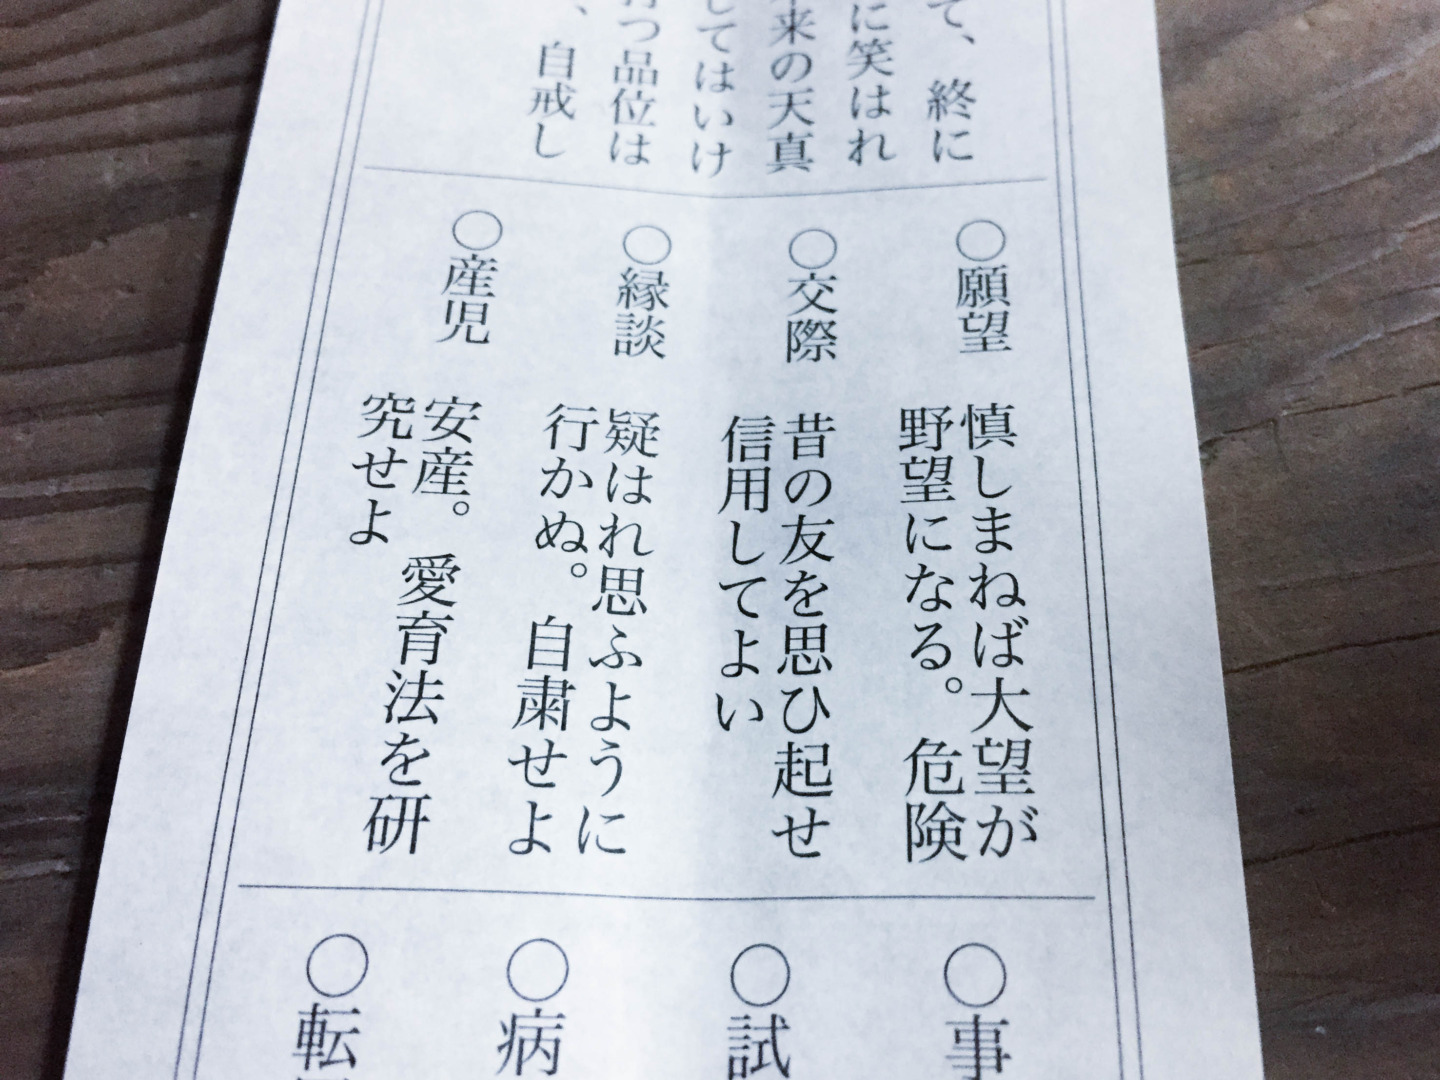 て、終に
に笑はれ
来の天真
してはいけ
つ品位は
、自戒し
○願望
慎しまねば大望が
野望になる。危険
○交際
昔の友を思ひ起せ
信用してよい
○縁談
疑はれ思ふように
行かぬ。自粛せよ
○産児
安産。愛育法を研
究せよ
○事
○試
○病
○転